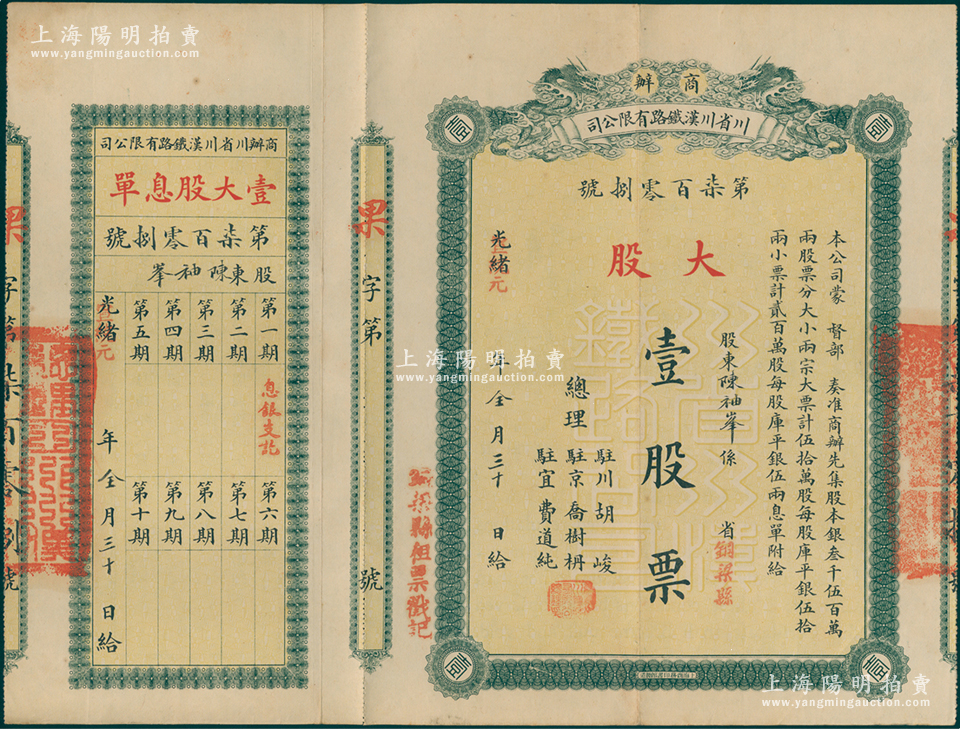 上海陽明拍賣
www.yangmingauction.com
商辦
川省川漢鐵路有限公司
第柒百零捌號
大股
本公司蒙 督部 奏准商辦先集股本銀叁千伍百萬
兩股票分大小兩宗大票計伍拾萬股每股庫平銀伍拾
兩小票計貳百萬股每股庫平銀伍兩息單附給
股東陳袖峯係 省銅梁縣
壹股票
總理
駐川胡峻
駐京喬樹枬
駐宜費道純
光緒
元
年 仝月三十 日給
梁
字第
號
商辦川省川漢鐵路有限公司
壹大股息單
第柒百零捌號
股東陳袖峯
第一期
息銀支訖
第二期
第三期
第四期
第五期
第六期
第七期
第八期
第九期
第十期
光緒
元
年 仝月三十 日給
梁
字第柒百零捌號
上海陽明拍賣
www.yangmingauction.com
上海陽明拍賣
www.yangmingauction.com